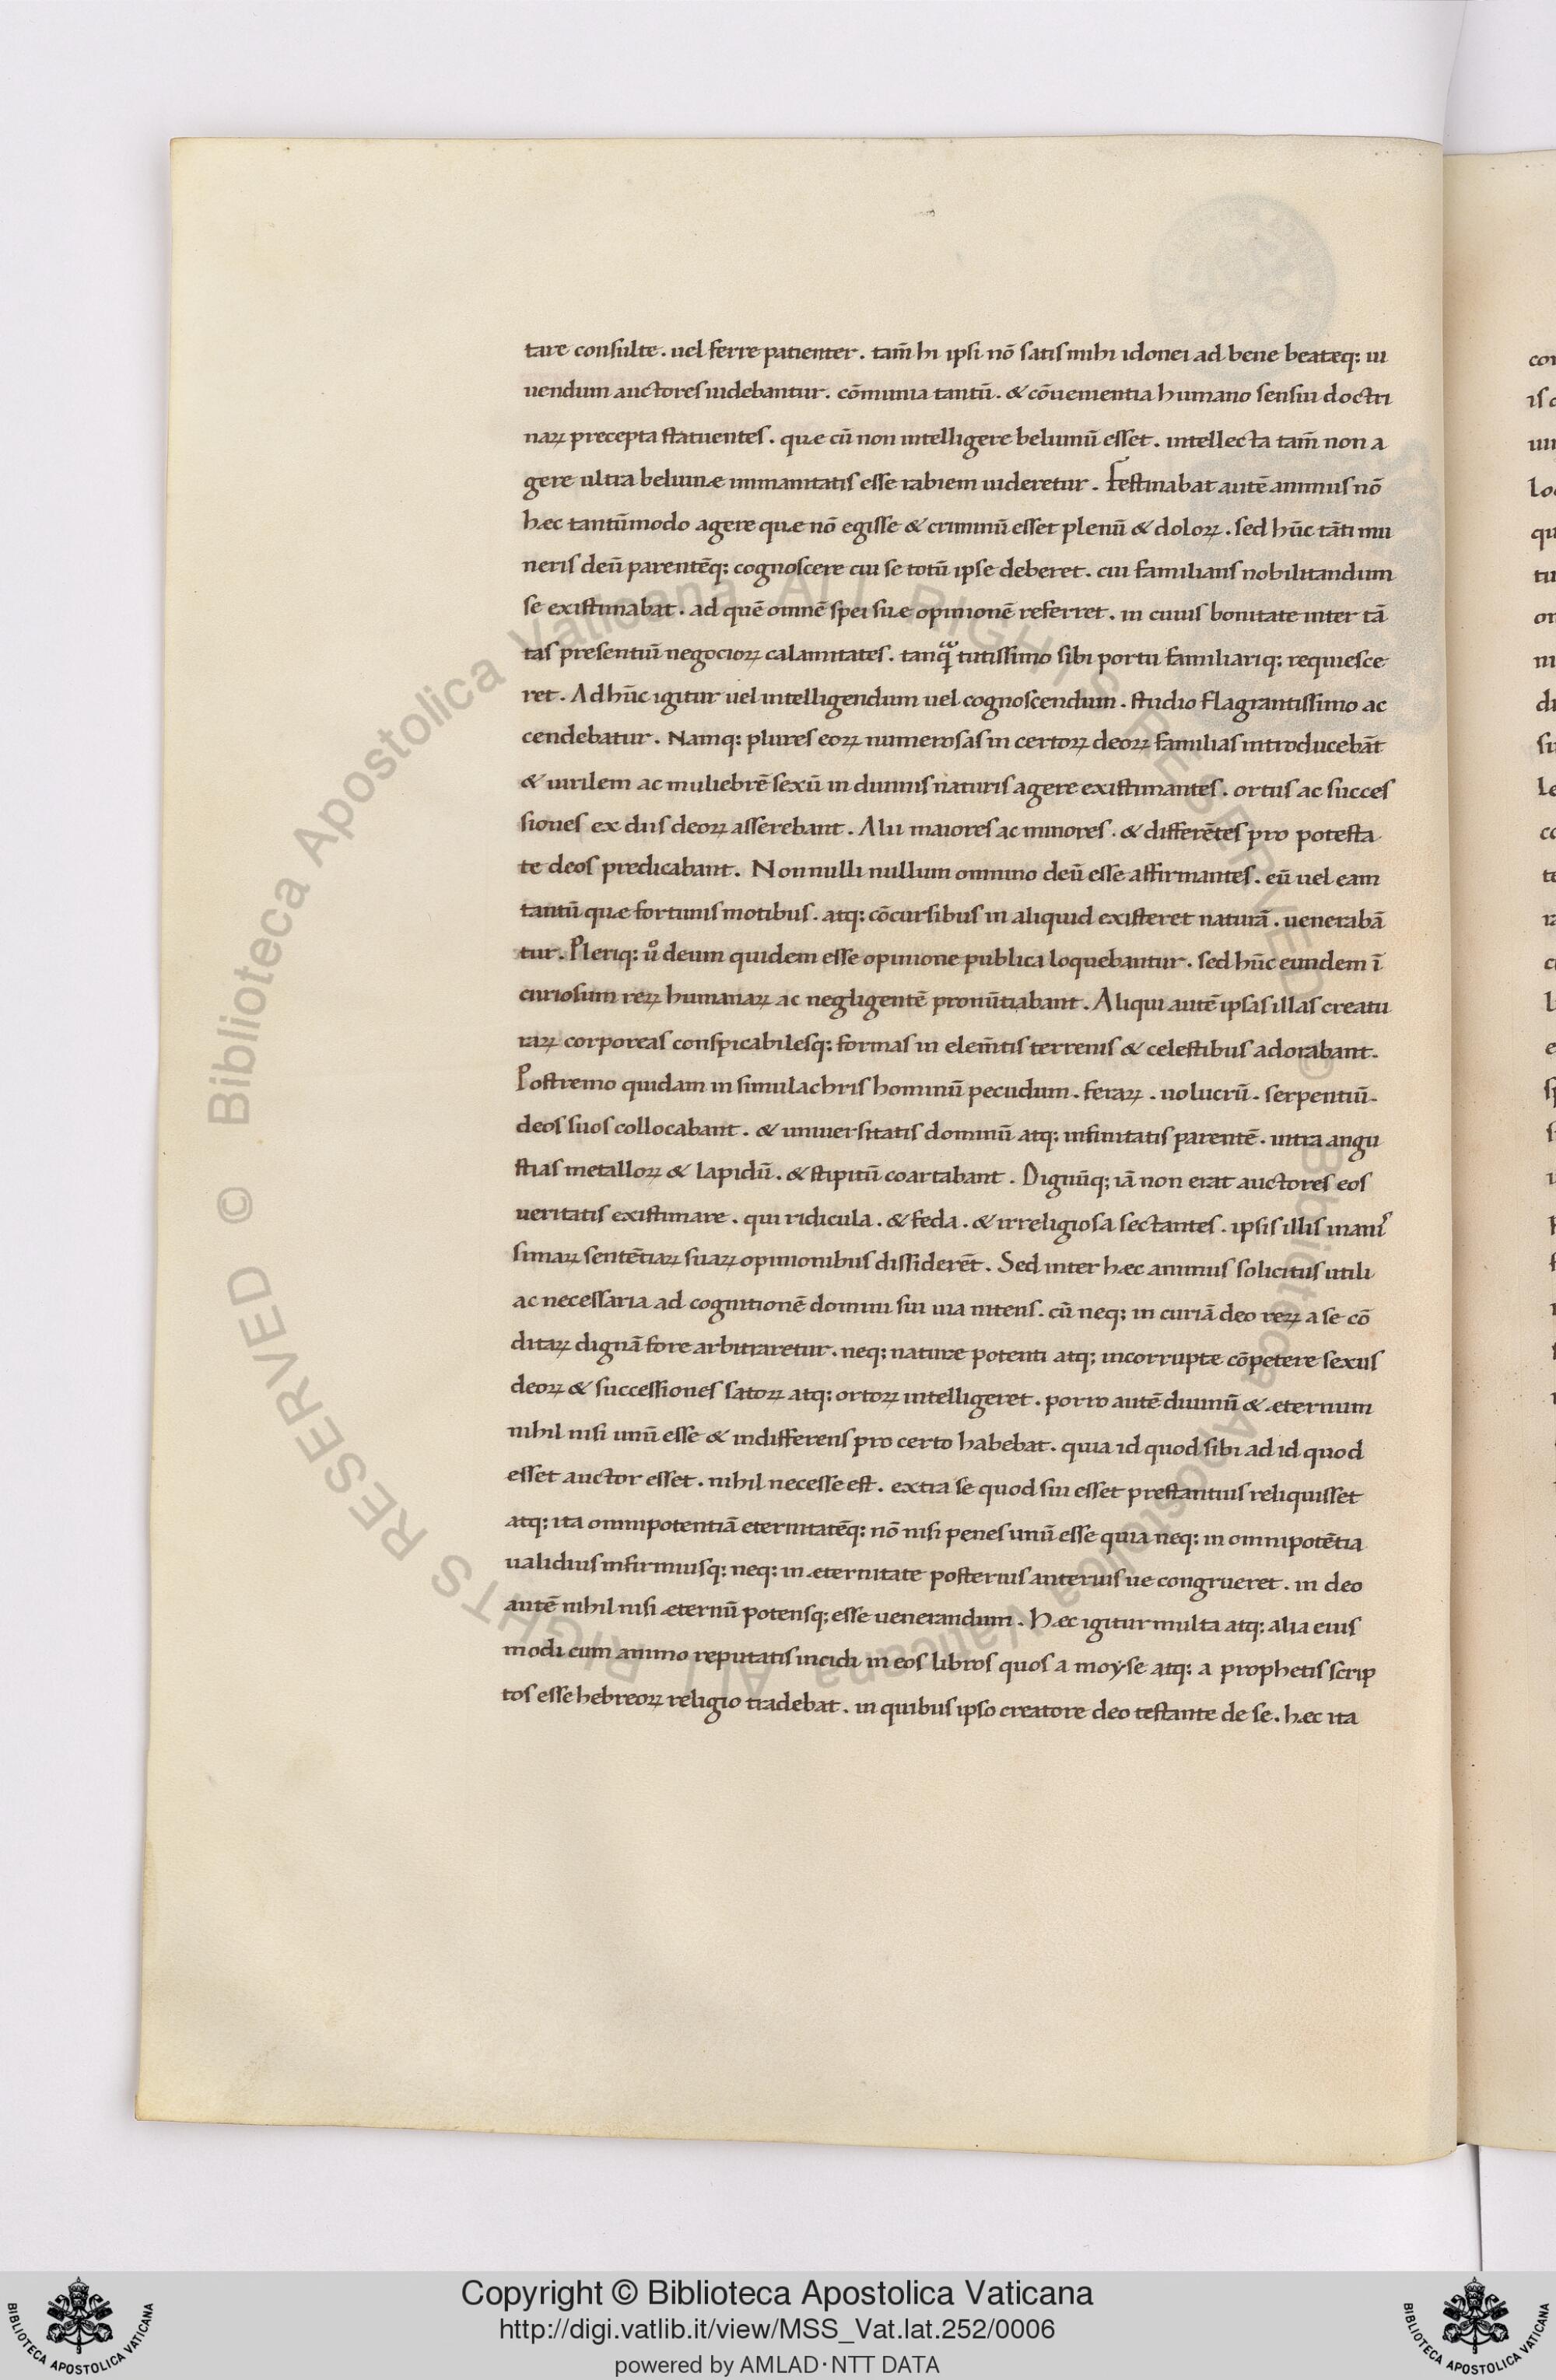 tare consulte. uel ferre patienter. tam̄ hi ipsi nō satis mihi idonei ad bene beateq: ui
uendum auctores uidebantur. cōmunia tantū. & cōuenientia humano sensui doctri
naꝝ precepta statuentes. quæ cū non intelligere beluinū esset. intellecta tam̄ non a
gere ultra beluinæ immanitatis esse rabiem uideretur. Festinabat autē animus nō
hæc tantūmodo agere quæ nō egisse & criminū esset plenū & doloꝝ. sed hūc tāti mu
neris deū parentēq: cognoscere cui se totū ipse deberet. cui familians nobilitandum
se existimabat. ad quē omnē spei suæ opinionē referret. in cuius bonitate inter tā
tas presentiū negocioꝝ calamitates. tanqᷓ tutissimo sibi portu familiariq: requiesce
ret. Ad hūc igitur uel intelligendum uel cognoscendum. studio flagrantissimo ac
cendebatur. Namq: plures eoꝝ numerosas in certoꝝ deoꝝ familias introducebāt
& uirilem ac muliebrē sexū in diuinis naturis agere existimantes. ortus ac succes
siones ex diis deoꝝ asserebant. Alii maiores ac minores. & differētes pro potesta
te deos predicabant. Nonnulli nullum omnino deū esse affirmantes. eū uel eam
tantū quæ fortunis motibus. atq: cōcursibus in aliquid existeret naturā. uenerabā
tur. Pleriq: u̾o deum quidem esse opinione publica loquebantur. sed hūc eundem ī
curiosum reꝝ humanaꝝ ac negligentē pronūtiabant. Aliqui autē ipsas illas creatu
raꝝ corporeas conspicabilesq: formas in elem̄tis terrenis & celestibus adorabant.
Postremo quidam in simulachris hominū pecudum. feraꝝ. uolucrū. serpentiū.
deos suos collocabant. & uniuersitatis dominū atq: infinitatis parentē. intra angu
stias metalloꝝ & lapidū. & stipitū coartabant. Dignūq; iā non erat auctores eos
ueritatis existimare. qui ridicula. & feda. & irreligiosa sectantes. ipsis illis inanis
simaꝝ sentētiaꝝ suaꝝ opinionibus dissiderēt. Sed inter hæc animus solicitus utili
ac necessaria ad cognitionē domini sui uia nitens. cū neq; in curiā deo reꝝ a se cō
ditaꝝ dignā fore arbitraretur. neq; naturæ potenti atq; incorruptæ cōpetere sexus
deoꝝ & successiones satoꝝ atq: ortoꝝ intelligeret. porro autē diuinū & æternum
nihil nisi unū esse & indifferens pro certo habebat. quia id quod sibi ad id quod
esset auctor esset. nihil necesse est. extra se quod sui esset prestantius reliquisset
atq: ita omnipotentiā eternitatēq: nō nisi penes unū esse quia neq: in omnipotētia
ualidius infirmiusq: neq: in æternitate posterius anterius ue congrueret. in deo
autē nihil nisi æternū potensq; esse uenerandum. Hæc igitur multa atq: alia eius
modi cum animo reputatis incidi in eos libros quos a moyse atq: a prophetis scrip
tos esse hebreoꝝ religio tradebat. in quibus ipso creatore deo testante de se. hæc ita
Copyright © Biblioteca Apostolica Vaticana
http://digi.vatlib.it/view/MSS_Vat.lat.252/0006
powered by AMLAD·NTT DATA
BIBLIOTECA APOSTOLICA VATICANA
BIBLIOTECA APOSTOLICA VATICANA
© Biblioteca Apostolica Vaticana ALL RIGHTS RESERVED © Biblioteca Apostolica Vaticana ALL RIGHTS RESERVED